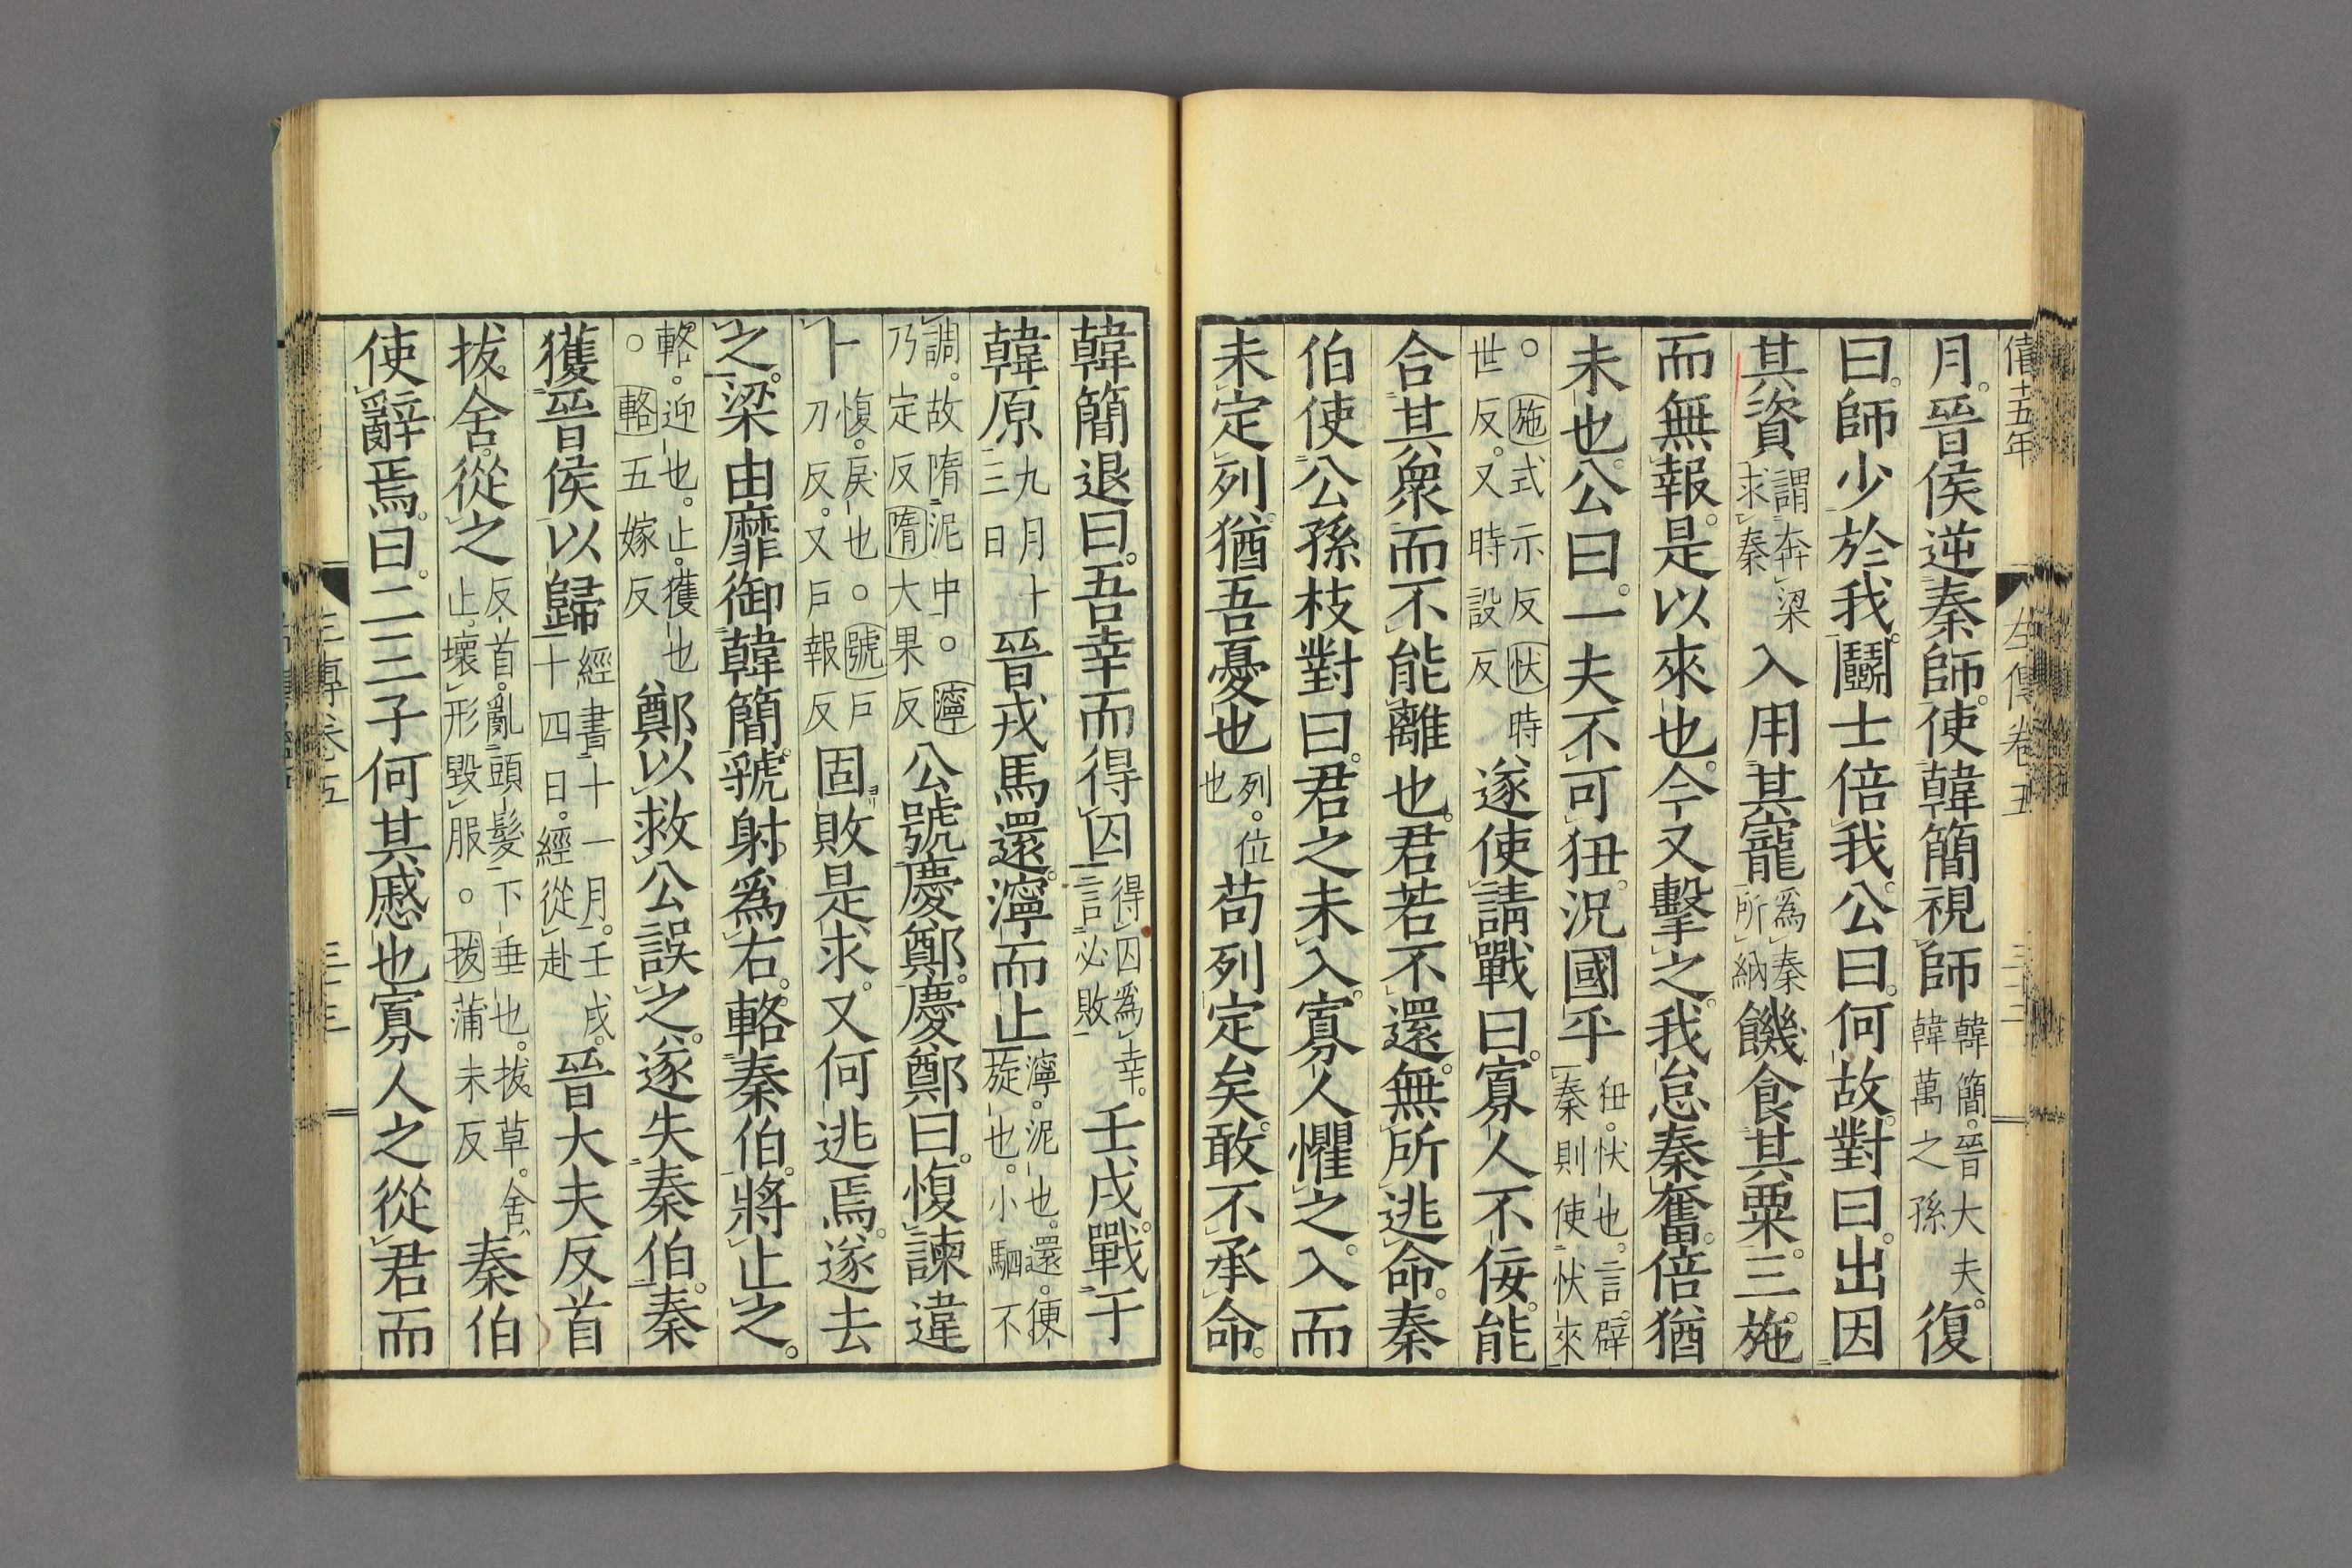 僖十五年
左傳卷五
月。晉侯逆秦師。使韓簡視師韓簡。晉大夫。韓萬之孫復
曰。師少於我。鬭士倍我。公曰。何故。對曰。出因
其資謂奔梁求秦入用其寵爲秦所納饑食其粟。三施
而無報。是以來也。今又擊之。我怠秦奮。倍猶
未也。公曰。一夫不可狃。況國乎狃。忕也。言。辟秦則使忕來
。施式示反忕時世反。又時設反遂使請戰曰。寡人不佞。能
合其衆而不能離也。君若不還。無所逃命。秦
伯使公孫枝對曰。君之未入。寡人懼之。入而
未定列。猶吾憂也列。位也苟列定矣。敢不承命。
韓簡退曰。吾幸而得囚得囚爲幸。言必敗壬戌。戰于
韓原九月十三日晉戎馬還。濘而止濘。泥也。還。便旋也。小駟不
調。故隋泥中。○濘乃定反隋大果反公號慶鄭。慶鄭曰。愎諫違
卜愎。戾也。○號戶刀反。又戶報反固敗是求。又何逃焉。遂去
之。梁由靡御韓簡。虢射爲右。輅秦伯。將止之。
輅。迎也。止。獲也。○輅五嫁反鄭以救公誤之。遂失秦伯。秦
獲晉侯以歸經書十一月。壬戌。十四日。經從赴晉大夫反首
拔舍。從之反首。亂頭髮下垂也。拔草。舍止。壞形毀服。○拔蒲末反秦伯
使辭焉。曰。二三子何其慼也寡人之從君而